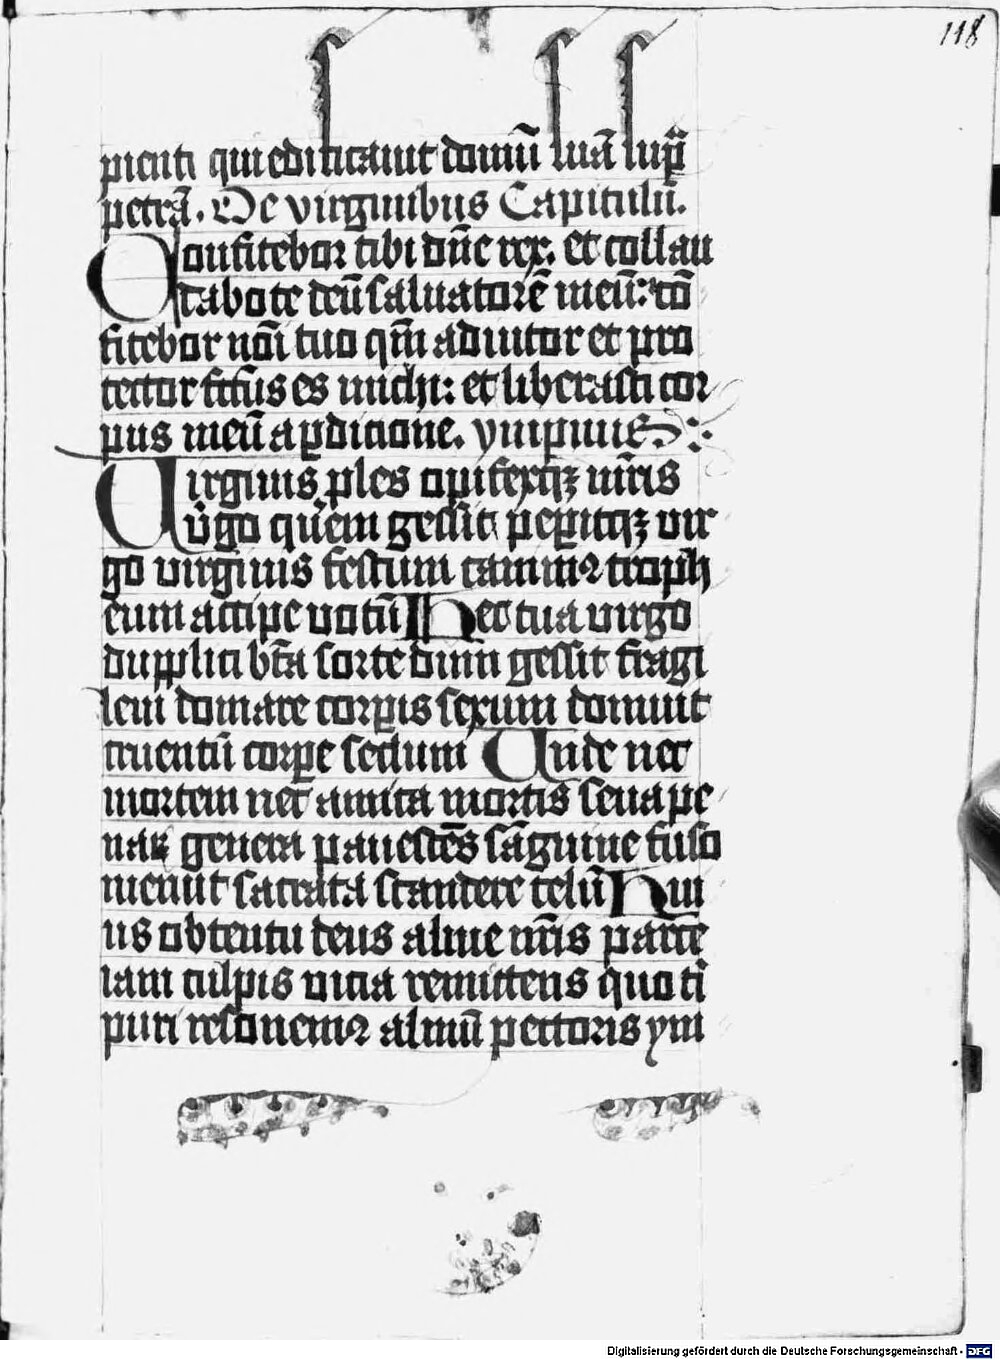 118
pienti qui edificauit domū suā sup̄
petrā. De virginibus Capitulū.
Confitebor tibi dn̄e rex. et collau
dabo te deū saluatorē meū: cō
fitebor noi̅ tuo qm̄ adiutor et pro
tector factus es michi: et liberasti cor
pus meū a ꝑditione. ympnus
Uirginis ꝓles opifexqꝫ mr̄is
v̄go quem gessit peꝑitqꝫ vir
go virginis festum canimꝰ troph
eum accipe uotū Hec tua virgo
dupplici bt̄a sorte dum gessit fragi
lem domare corꝑis sexum domuit
cruentū corꝑe seclum Unde nec
mortem nec amica mortis seua pe
naꝝ genera pauescēs sāguine fuso
meruit sacrata scandere celū Hui
us obtentu deus alme nr̄is parce
iam culpis vicia remittens quo ti
puri resonemꝰ almū pectoris ym
Digitalisierung gefördert durch die Deutsche Forschungsgemeinschaft - DFG